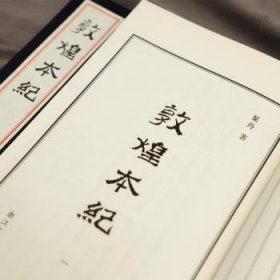 敦煌本紀
葉舟 著
敦煌本紀
一